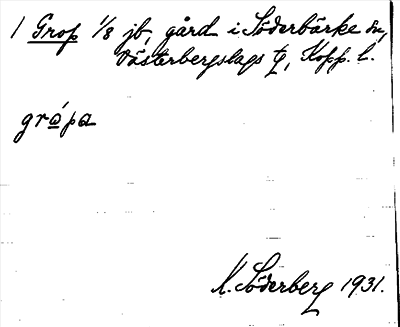 1 Grop 1/8 jb, gård i Söderbärke sn,
Västerbergslags tg, Kopp. l.
gró̲pa
K. Söderberg 1931.